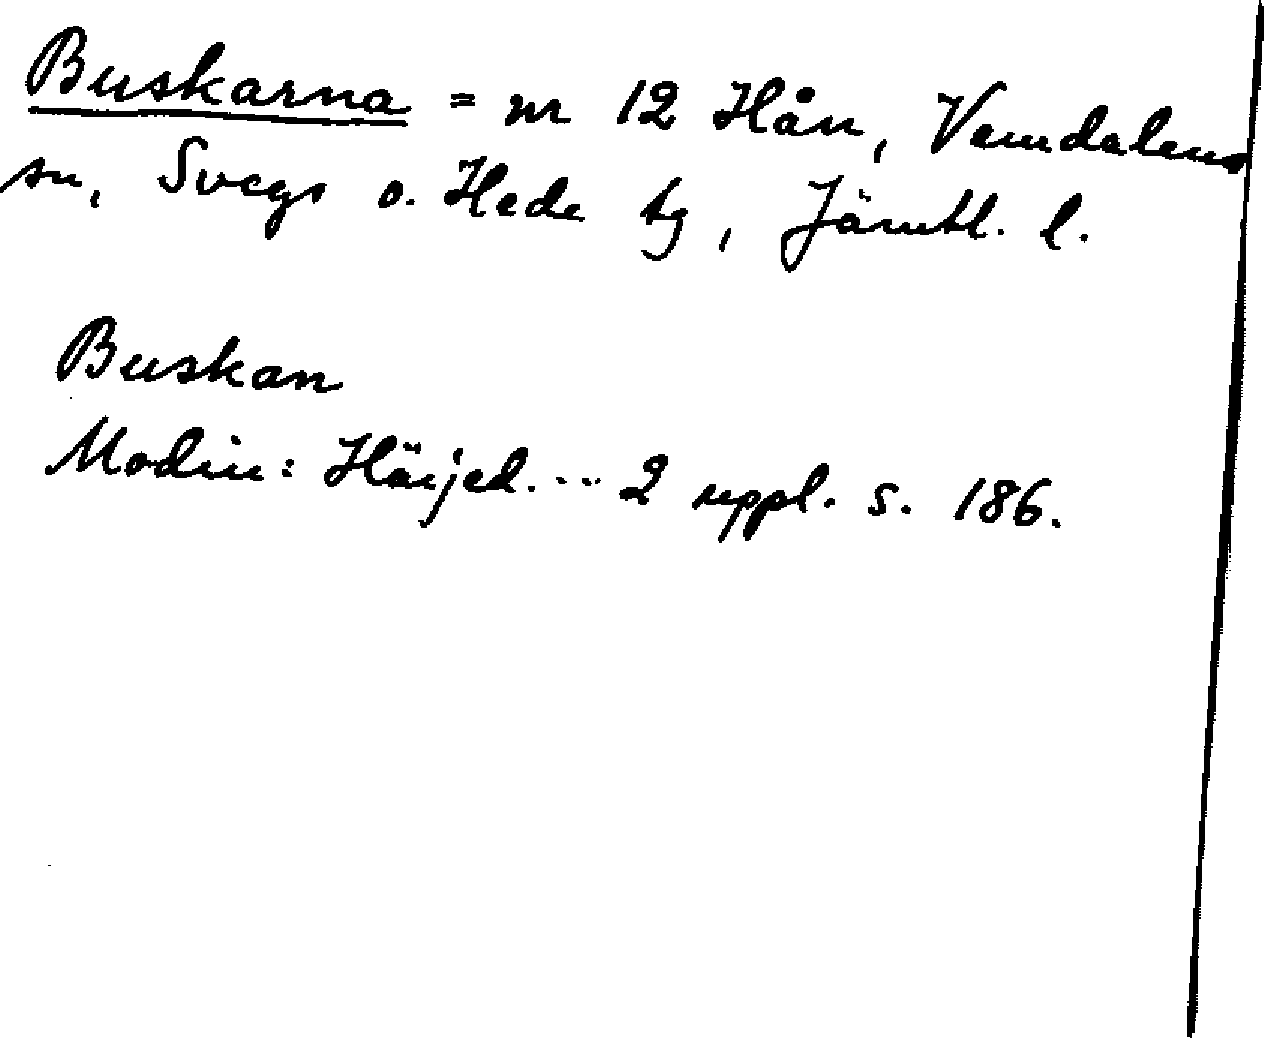 Buskarna = nr 12 Hån, Vemdalens
sn, Svegs o. Hede tg, Jämtl. l.
Buskan
Modin: Härjed. ... 2 uppl. s. 186.